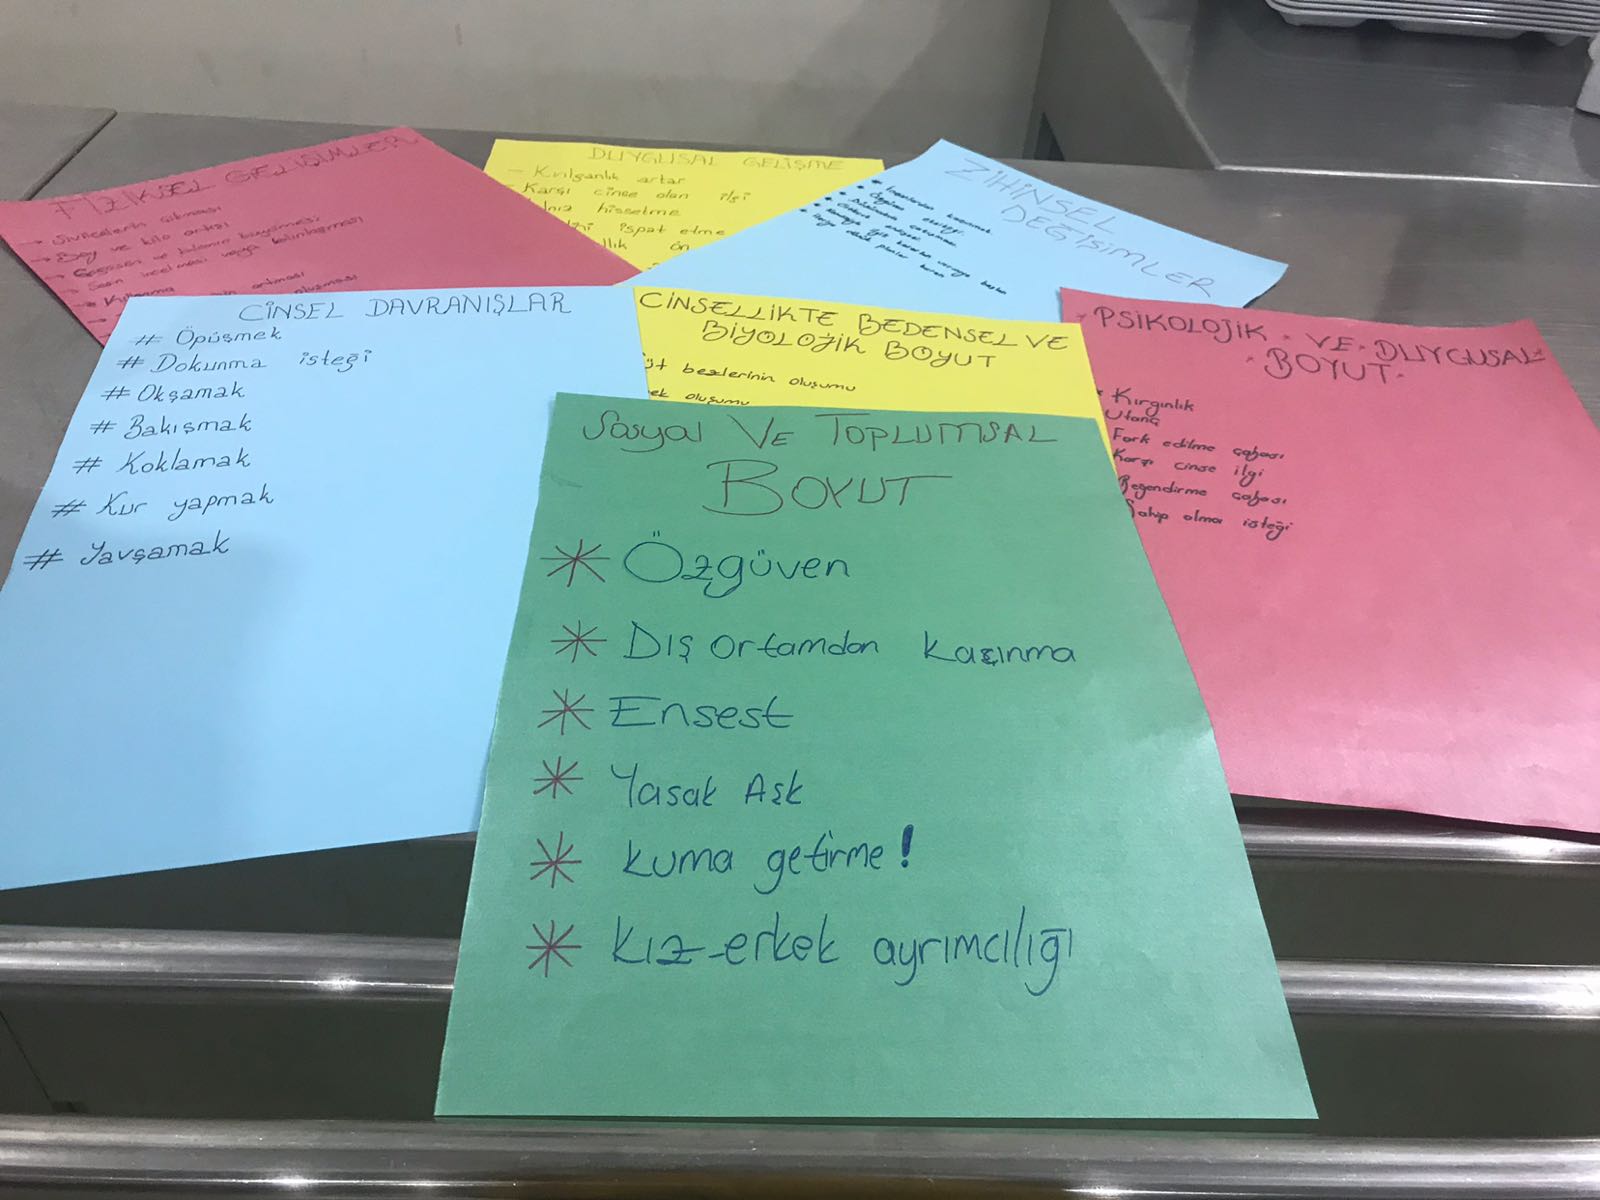 FİZİKSEL GELİŞİMLER
→ Sivilcelerin çıkması
→ Boy ve kilo artışı
→ Sesin incelmesi veya kalınlaşması
DUYGUSAL GELİŞME
- Kırılganlık artar
- Karşı cinse olan ilgi
hissetme
ispat etme
ön
ZİHİNSEL
DEĞİŞİMLER
CİNSEL DAVRANIŞLAR
# Öpüşmek
# Dokunma isteği
# Okşamak
# Bakışmak
# Koklamak
# Kur yapmak
# Yavşamak
CİNSELLİKTE BEDENSEL VE
BİYOLOJİK BOYUT
bezlerinin oluşumu
oluşumu
PSİKOLOJİK VE DUYGUSAL
BOYUT
Kırgınlık
Utanç
Fark edilme çabası
Karşı cinse ilgi
Beğendirme çabası
Sahip olma isteği
Sosyal VE TOPLUMSAL
BOYUT
* Özgüven
* Dış ortamdan kaçınma
* Ensest
* Yasak Aşk
* Kuma getirme!
* Kız-erkek ayrımcılığı